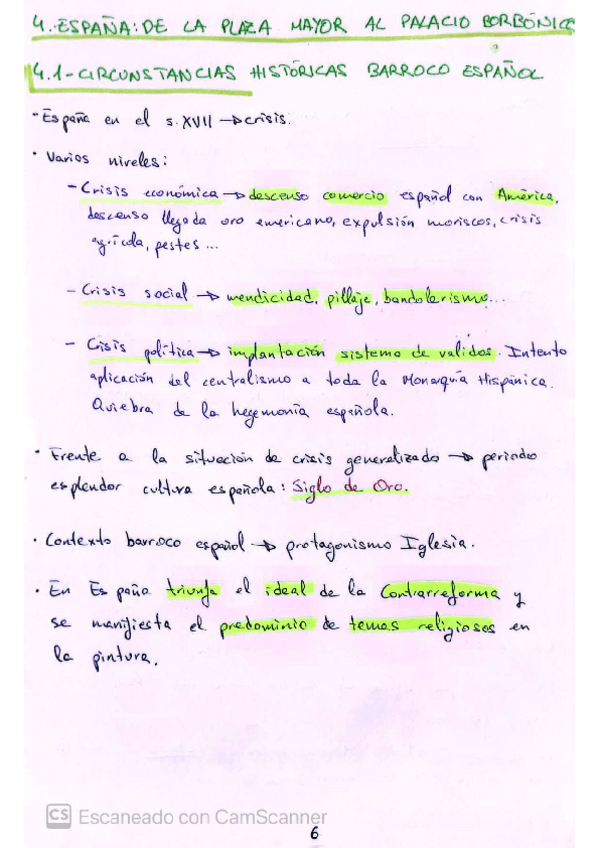 4.-ESPAÑA: DE LA PLAZA MAYOR AL PALACIO BORBÓNICO
4.1-CIRCUNSTANCIAS HISTÓRICAS BARROCO ESPAÑOL
- España en el s. XVII → crisis.
· Varios niveles:
- Crisis económica → descenso comercio español con América,
descenso llegada oro americano, expulsión moriscos, crisis
agrícola, pestes ...
- Crisis social → mendicidad, pillaje, bandolerismo...
- Crisis política → implantación sistema de validos. Intento
aplicación del centralismo a toda la Monarquía Hispánica.
Quiebra de la hegemonía española.
· Frente a la situación de crisis generalizada → periodo
esplendor cultura española: Siglo de Oro.
· Contexto barroco español → protagonismo Iglesia.
· En España triunfa el ideal de la Contrarreforma y
se manifiesta el predominio de temas religiosos en
la pintura.
CS Escaneado con CamScanner
6